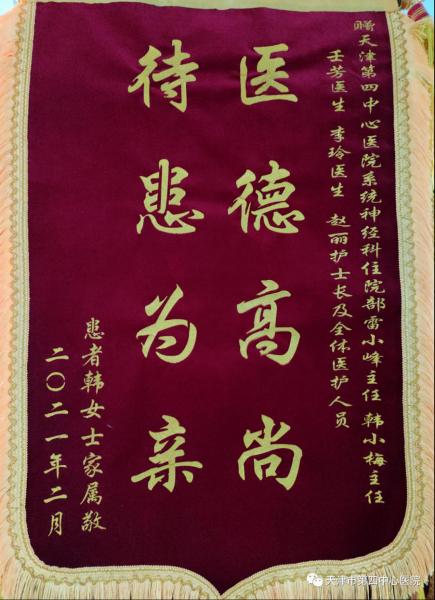 赠天津第四中心医院系统神经科住院部雷小峰主任 韩小梅主任
壬芳医生 李玲医生 赵丽护士长及全体医护人员
医德高尚
待患为亲
患者韩女士家属敬
二〇二一年二月
天津市第四中心医院